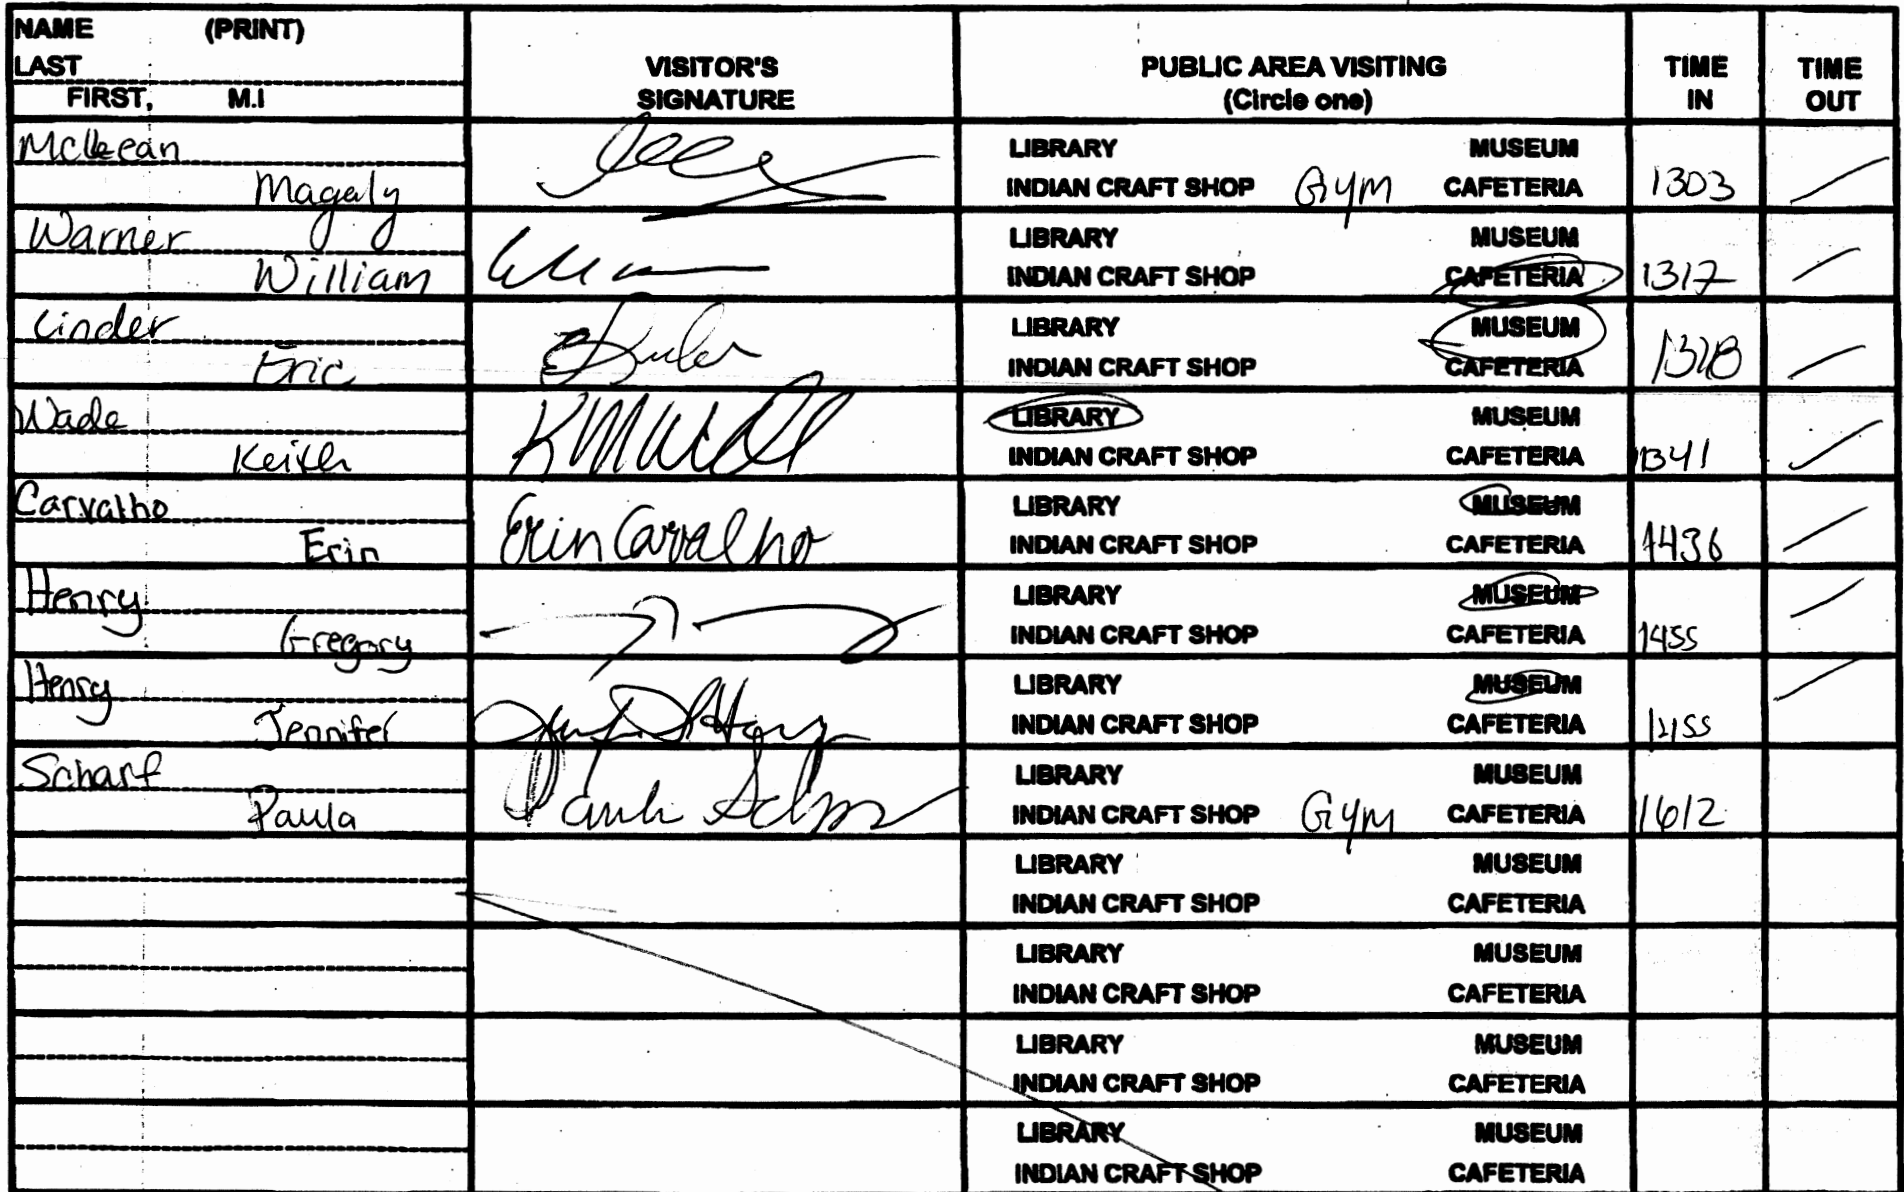 NAME (PRINT)
LAST
FIRST, M.I
VISITOR'S
SIGNATURE
PUBLIC AREA VISITING
(Circle one)
TIME
IN
TIME
OUT
McLean
Magaly
LIBRARY MUSEUM
INDIAN CRAFT SHOP Gym CAFETERIA
1303
Warner
William
LIBRARY MUSEUM
INDIAN CRAFT SHOP CAFETERIA
1317
Linder
Eric
LIBRARY MUSEUM
INDIAN CRAFT SHOP CAFETERIA
1328
Wade
Keith
LIBRARY MUSEUM
INDIAN CRAFT SHOP CAFETERIA
1341
Carvalho
Erin
Erin Carvalho
LIBRARY MUSEUM
INDIAN CRAFT SHOP CAFETERIA
1436
Henry
Gregory
LIBRARY MUSEUM
INDIAN CRAFT SHOP CAFETERIA
1455
Henry
Jennifer
LIBRARY MUSEUM
INDIAN CRAFT SHOP CAFETERIA
1455
Scharf
Paula
LIBRARY MUSEUM
INDIAN CRAFT SHOP Gym CAFETERIA
1612
LIBRARY MUSEUM
INDIAN CRAFT SHOP CAFETERIA
LIBRARY MUSEUM
INDIAN CRAFT SHOP CAFETERIA
LIBRARY MUSEUM
INDIAN CRAFT SHOP CAFETERIA
LIBRARY MUSEUM
INDIAN CRAFT SHOP CAFETERIA